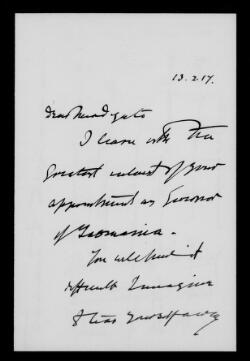 13.2.17.
Dear Newdegate
I learn with the
greatest interest of your
appointment as Governor
of Tasmania.
You will find it
difficult